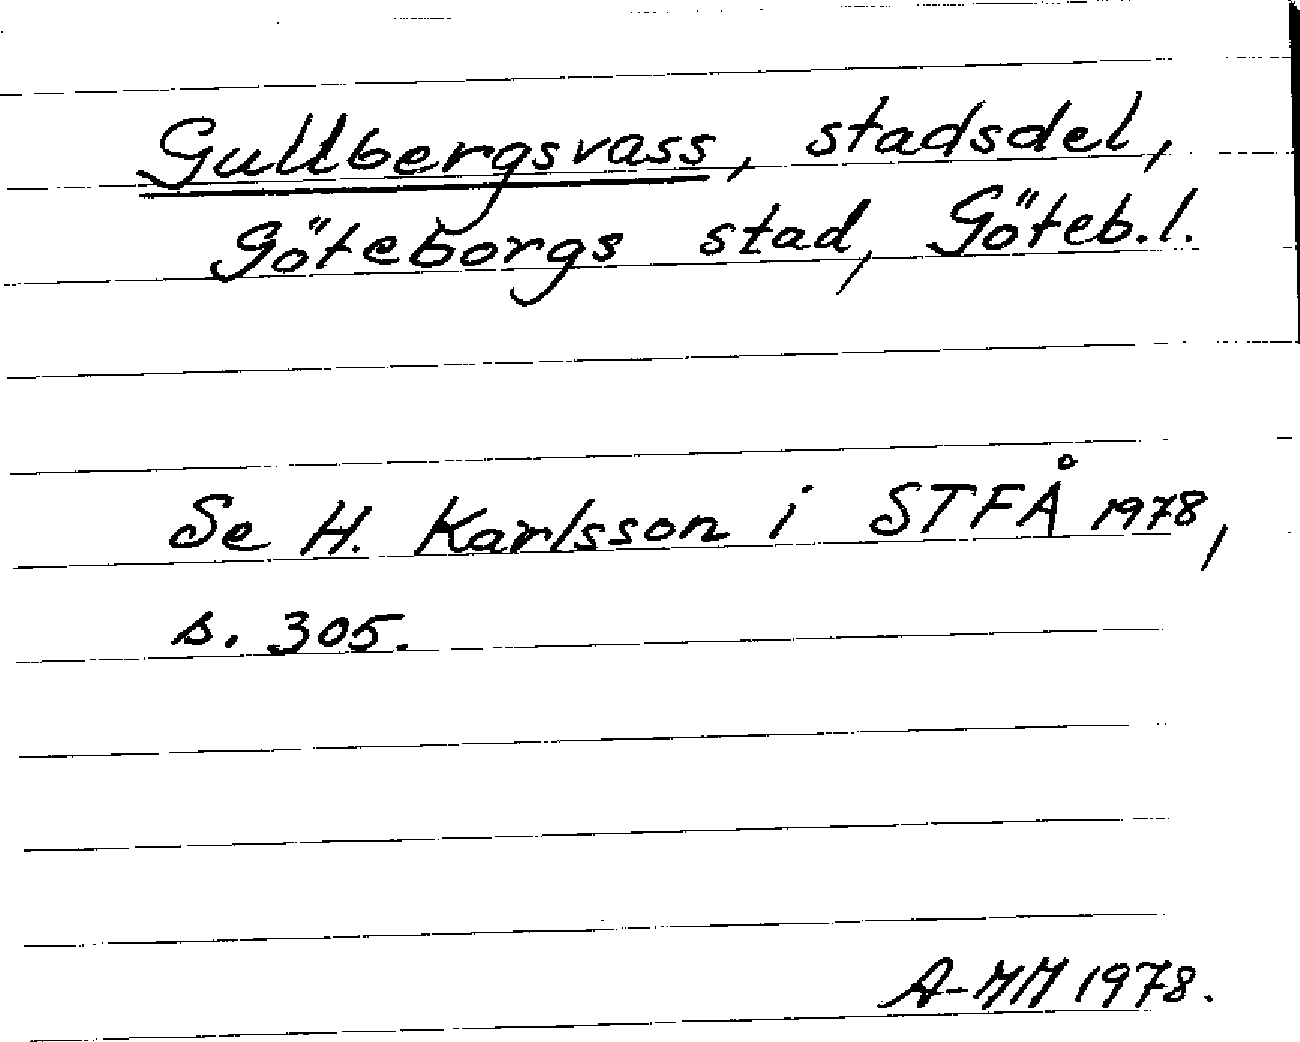 Gullbergsvass, stadsdel,
Göteborgs stad, Göteb.l.
Se H. Karlsson i STFÅ 1978,
s. 305.
A-MM 1978.